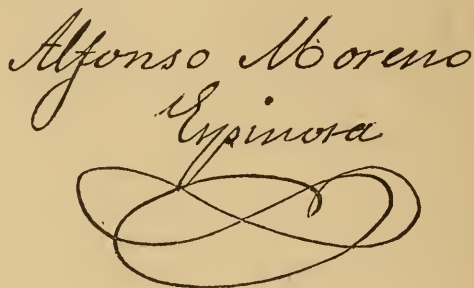 Alfonso Moreno
Espinosa